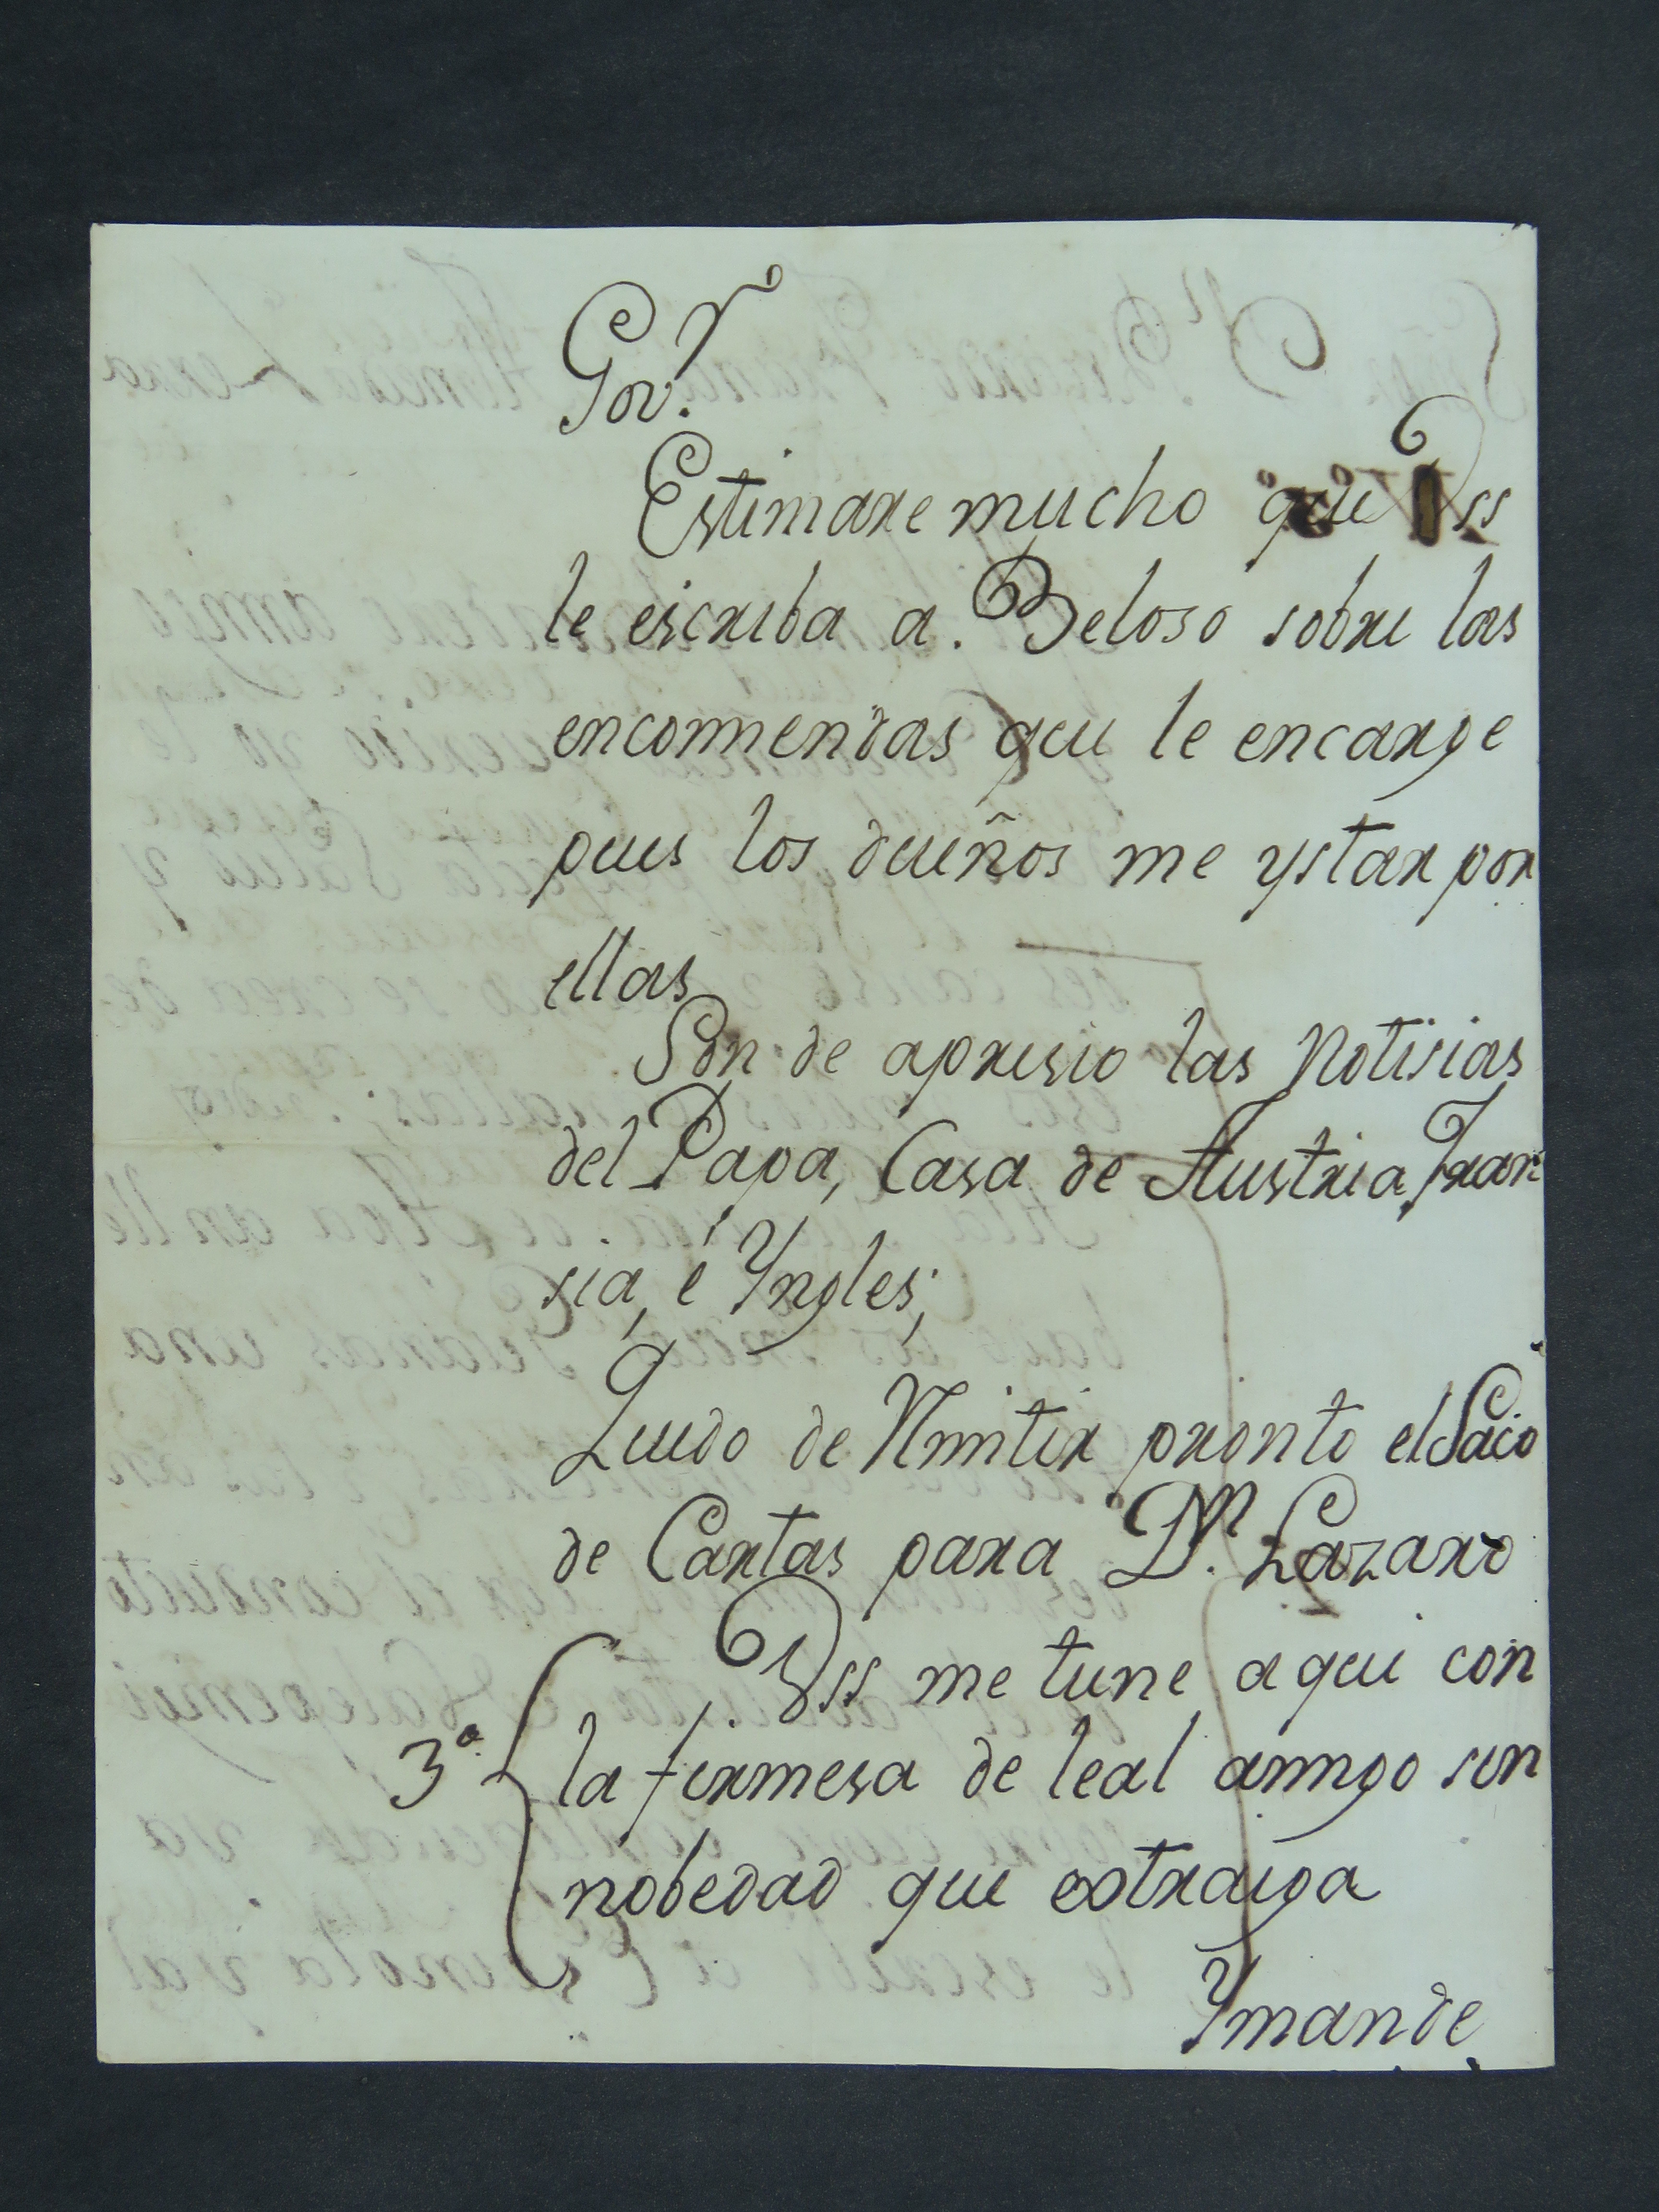 Gov.r
Estimare mucho que Vss
le escriba a. Beloso sobre las
encomiendas que le encarge
pues los dueños me ystar por
ellas
Son de apresio las Notisias
del Papa, Casa de Austria, Fran
sia, é Yngles;
Quedo de Rmitir pronto el Saco
de Cartas para Dn. Lazaro
Vss me tiene aqui con
3a. la firmesa de leal amigo sin
nobedad que extraiga
Ymande